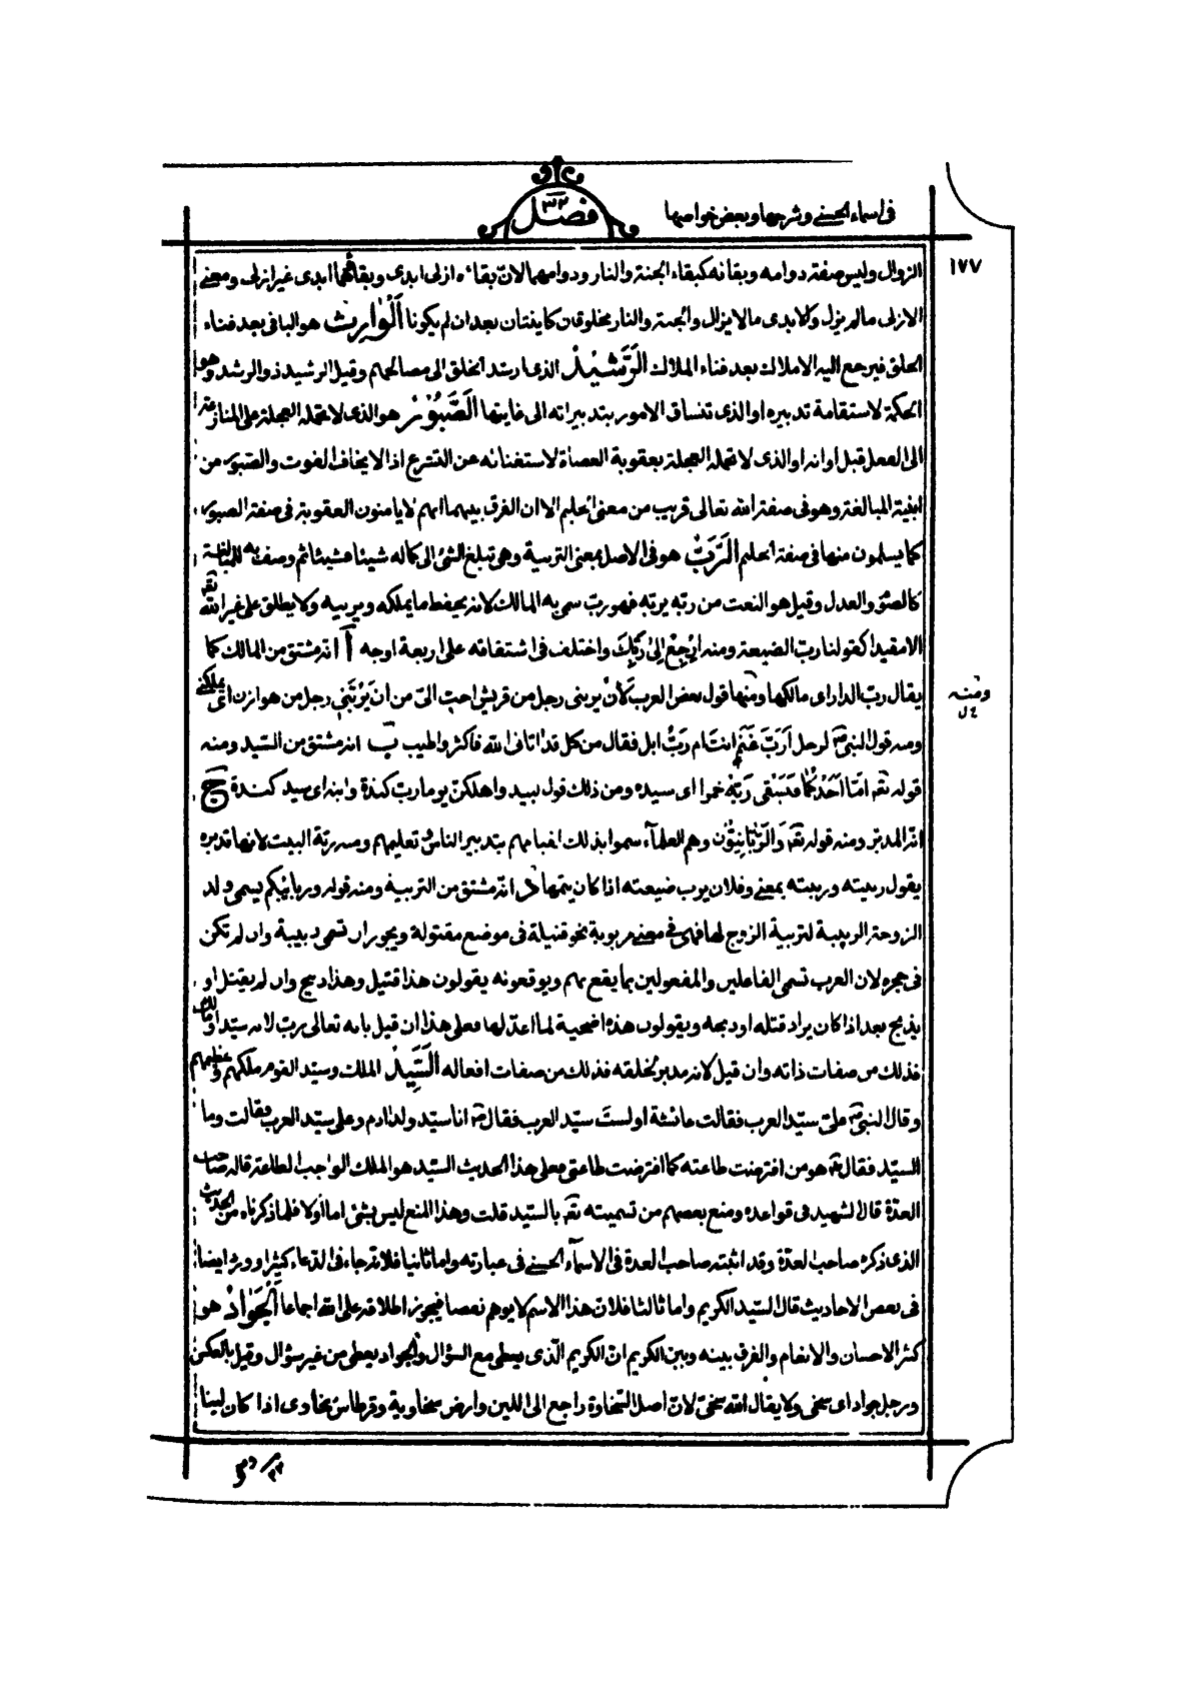 فى اسماء الحسنى وشرحها وبعض خواصها
فصل ٣٢
١٧٧
الزوال وليس صفة دوامه وبقائه كبقاء الجنة والنار ودوامهما لان بقائه ازلى ابدى وبقائهما ابدى غير ازلى ومعنى
الازلى ما لم يزل والابدى ما لا يزال والجنة والنار مخلوقتان كاينتان بعد ان لم يكونا اَلْوٰارِث هو الباقى بعد فناء
الخلق فيرجع اليه الاملاك بعد فناء الملاك الرَّشيدُ الذى ارشد الخلق الى مصالحهم وقيل الرشيد ذو الرشد وهو
الحكمة لاستقامة تدبيره او الذى تنساق الامور بتدبيراته الى غايتها الصَّبُورُ هو الذى لا تحمله العجلة على المنازعة
الى الفعل قبل اوانه او الذى لا تحمله العجلة بعقوبة العصاة لاستغنائه عن التسرع اذ لا يخاف الفوت والصبور من
ابنية المبالغة وهو فى صفة الله تعالى قريب من معنى الحليم الا ان الفرق بينهما انهم لا يامنون العقوبة فى صفة الصبور
كما يسلمون منها فى صفة الحليم الرَّبُّ هو فى الاصل بمعنى التربية وهى تبلغ الشئ الى كماله شيئا فشيئا ثم وصف به للمبالغة
كالصوم والعدل وقيل هو النعت من ربه يربه فهو رب سمى به المالك لانه يحفظ ما يملكه ويربيه ولا يطلق على غير الله تعـ
الا مقيدا كقولنا رب الضيعة ومنه اِرْجِعْ اِلىٰ رَبِّكَ واختلف فى اشتقاقه على اربعة اوجه آ انه مشتق من المالك كما
يقال رب الدار اى مالكها ومنها قول بعض العرب لان يربنى رجل من قريش احب الىّ من ان يَرُبَّنى رجل من هوازن اى يملكنى
ومنه قول النبى ص لرجل اَرَبُّ غَنَمٍ انت ام رَبُّ ابل فقال من كل قد اتانى الله فاكثر واطيب ب انه مشتق من السّيد ومنه
قوله تعـ امّا اَحَدُكُمٰا فَيَسْقى رَبَّهُ خمرا اى سيده ومن ذلك قول لبيد واهلكن يوما رب كندة وابنه اى سيد كندة ج
انه المدبر ومنه قوله تعـ وَالرَّبّٰانِيُّونَ وهم العلمآء سموا بذلك لقيامهم بتدبير الناس وتعليمهم ومنه ربة البيت لانها تدبره
يقول ربيته ورببته بمعنى وفلان يرب ضيعته اذا كان يتمها د انه مشتق من التربية ومنه قوله وربائبكم يسمى ولد
الزوجة الربيبة لتربية الزوج لها فهى فى معنى مربوبة نحو قتيلة فى موضع مقتولة ويجوز ان تسمى ربيبة وان لم تكن
فى حجره لان العرب تسمى الفاعلين والمفعولين بما يقع بهم ويوقعونه يقولون هذا قتيل وهذا ذبيح وان لم يقتل او
يذبح بعد اذا كان يراد قتله او ذبحه ويقولون هذه اضحية لما اعدّ لها فعلى هذا ان قيل بانه تعالى رب لانه سيّد او مالك
فذلك من صفات ذاته وان قيل لانه مدبر لخلقه فذلك من صفات افعاله السَّيِّدُ الملك وسيّد القوم ملكهم وعظيمهم
وقال النبى ص علىّ سيّد العرب فقالت عائشة اولستَ سيّد العرب فقال ص انا سيّد ولد ادم وعلى سيّد العرب فقالت وما
السيّد فقال ص هو من افترضت طاعته كما افترضت طاعتى فعلى هذا الحديث السيّد هو الملك الواجب الطاعة قاله صاحب
العدّة قال الشهيد فى قواعده ومنع بعضهم من تسميته تعـ بالسيّد قلت وهذا المنع ليس بشئ اما اولا فلما ذكرناه من الحديث
الذى ذكره صاحب العدّة وقد اثبته صاحب العدة فى الاسمآء الحسنى فى عبارته واما ثانيا فلانه جاء فى الدعاء كثيرا وورد ايضا
فى بعض الاحاديث قال السيّد الكريم واما ثالثا فلان هذا الاسم لا يوهم نقصا فيجوز اطلاقه على الله اجماعا الجَوٰادُ هو
كثير الاحسان والانعام والفرق بينه وبين الكريم ان الكريم الّذى يعطى مع السؤال والجواد يعطى من غير سؤال وقيل بالعكس
ورجل جواد اى سخى ولا يقال الله سخىّ لان اصل السّخاوة راجع الى اللين وارض سخاوية وقرطاس سخاوى اذا كان لينا
ومنه